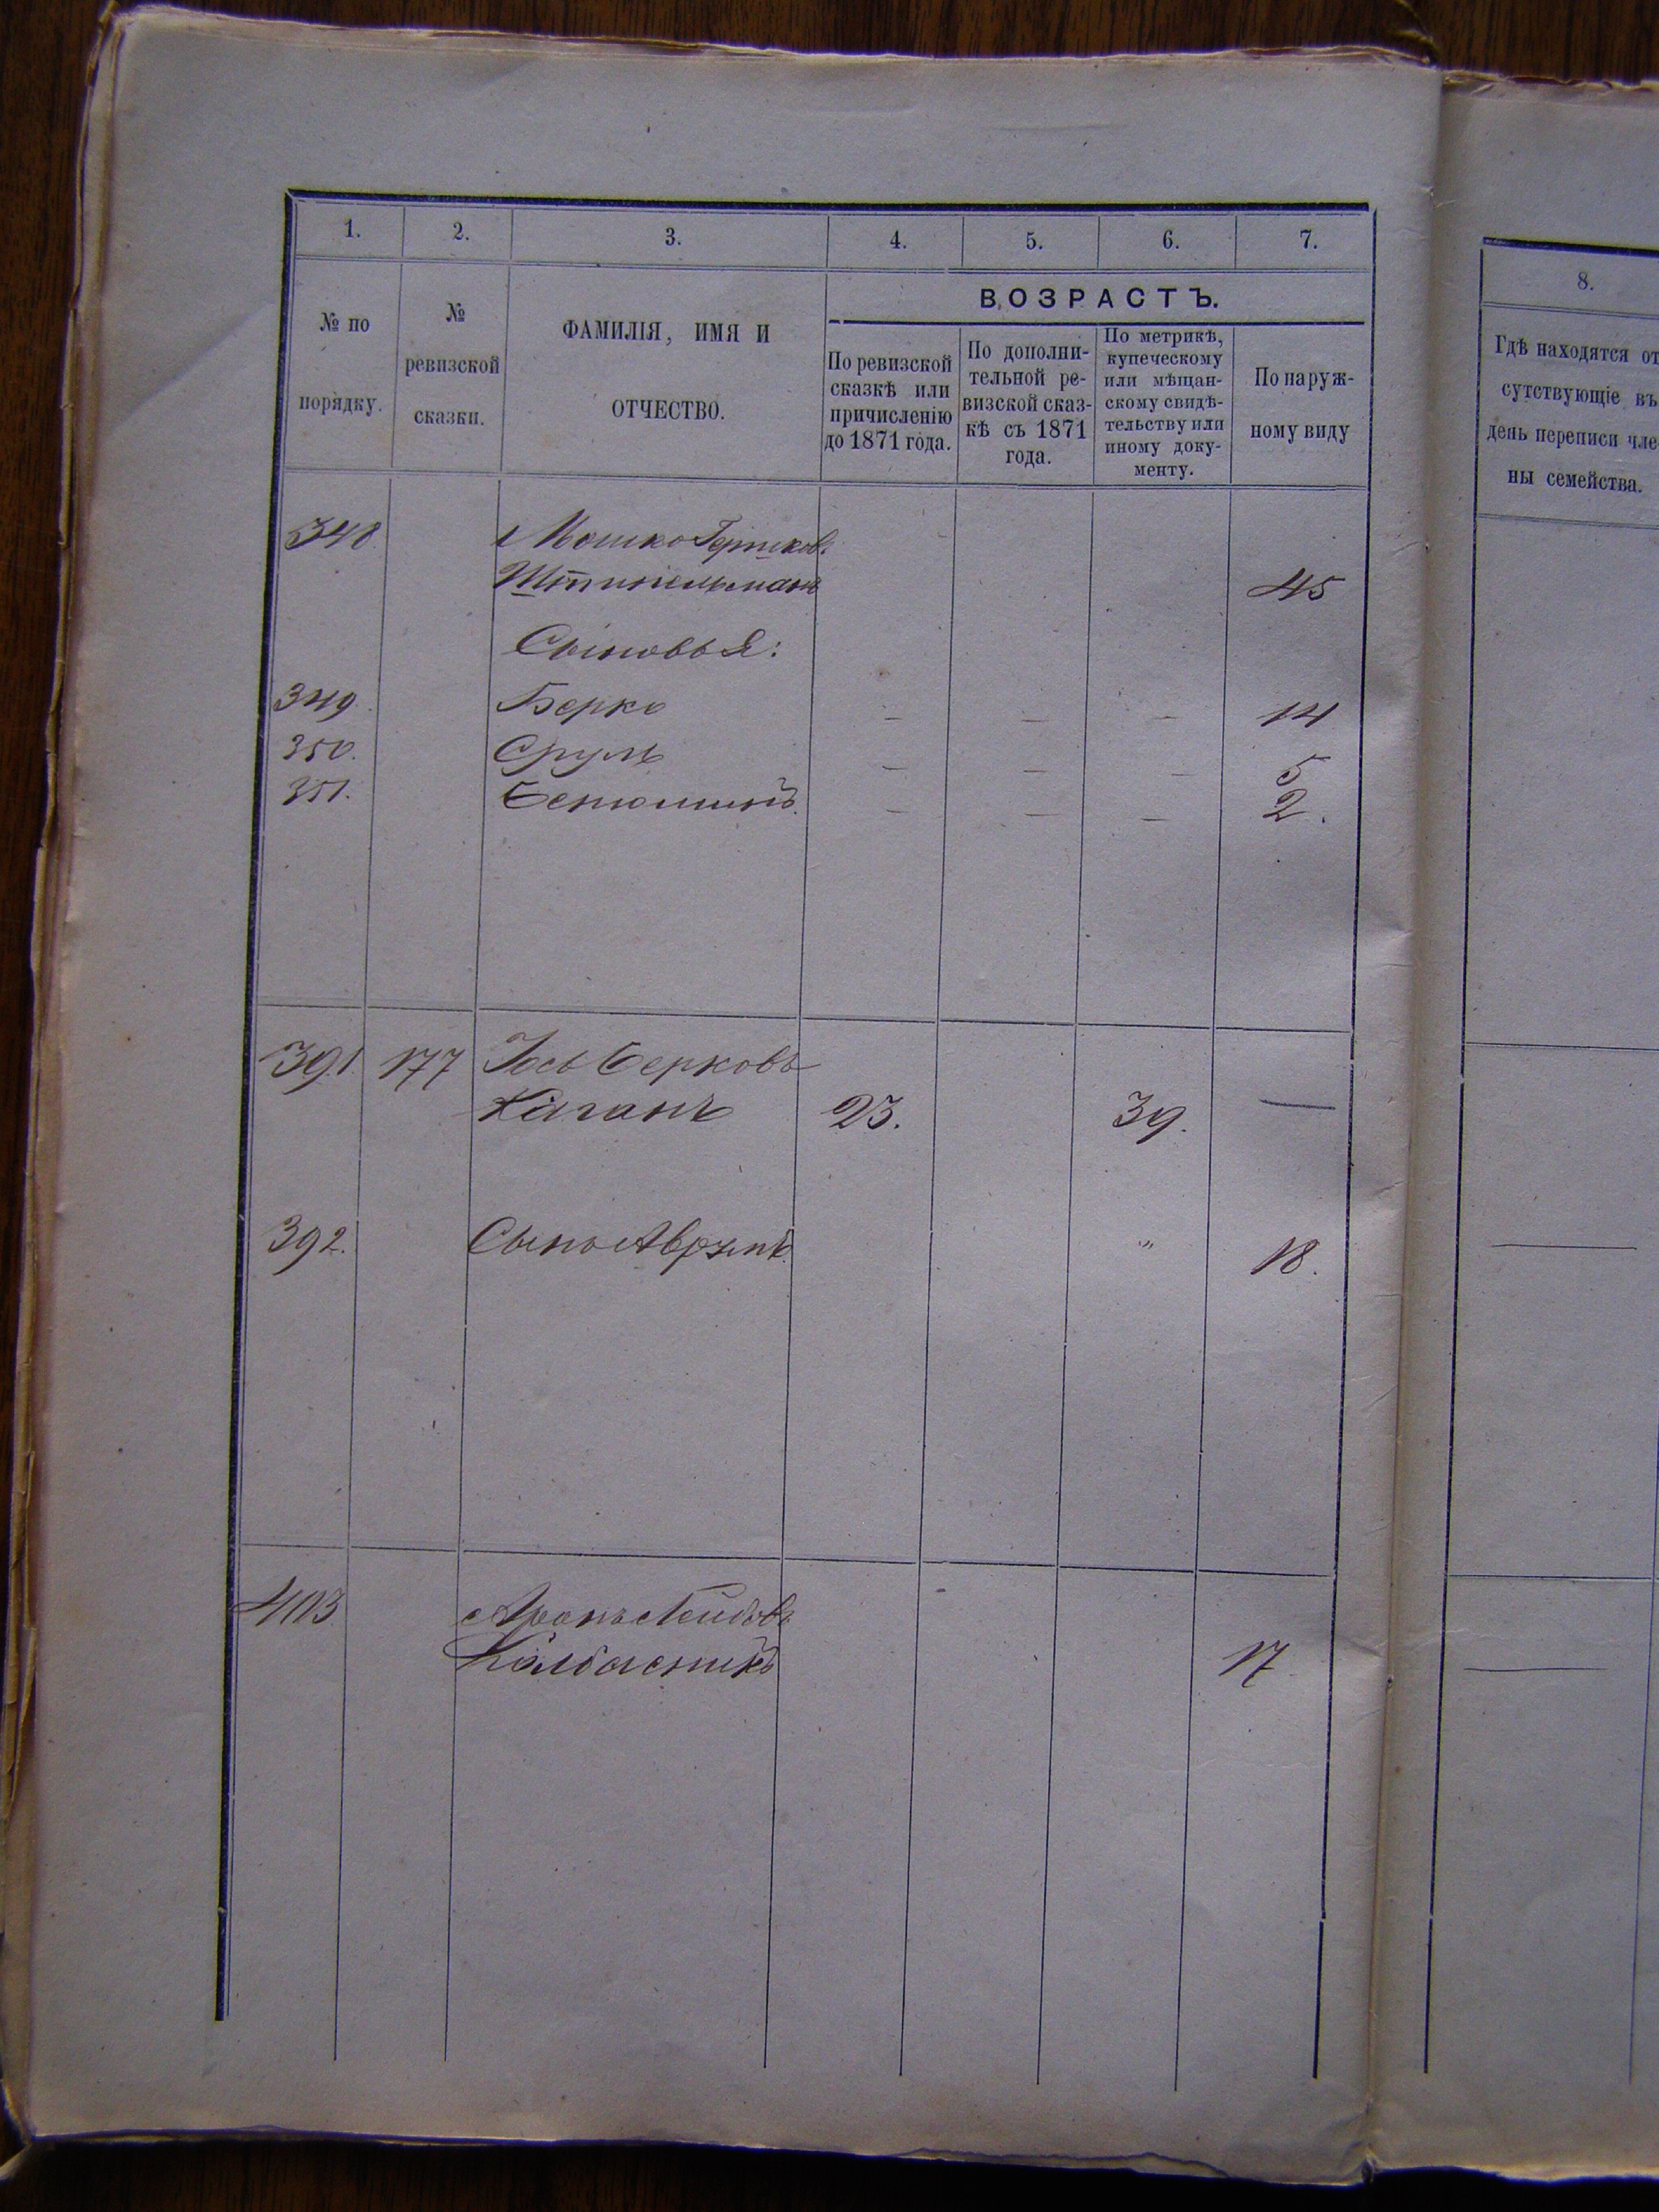 1. 2. 3. 4. 5. 6. 7.
№ по порядку.
№ ревизской сказки.
ФАМИЛІЯ, ИМЯ И ОТЧЕСТВО.
ВОЗРАСТЪ.
По ревизской сказкѣ или причисленію до 1871 года.
По дополни-тельной ре-визской сказ-кѣ съ 1871 года.
По метрикѣ, купеческому или мѣщан-скому свидѣ-тельству или иному доку-менту.
По наруж-ному виду
348 Мошко Гершков.
45
Сыновья:
349. Берко — — — 14
350. Сруль — — — 5
351. Бенюминъ. — — — 2.
391. 177 Іось Берковъ
Каганъ 23. 39. —
392. Сынъ Аврумъ. " 18. —
403 Аронъ Лейбовъ
Колбасникъ 17 —
8.
Гдѣ находятся от
сутствующіе въ
день переписи чле
ны семейства.